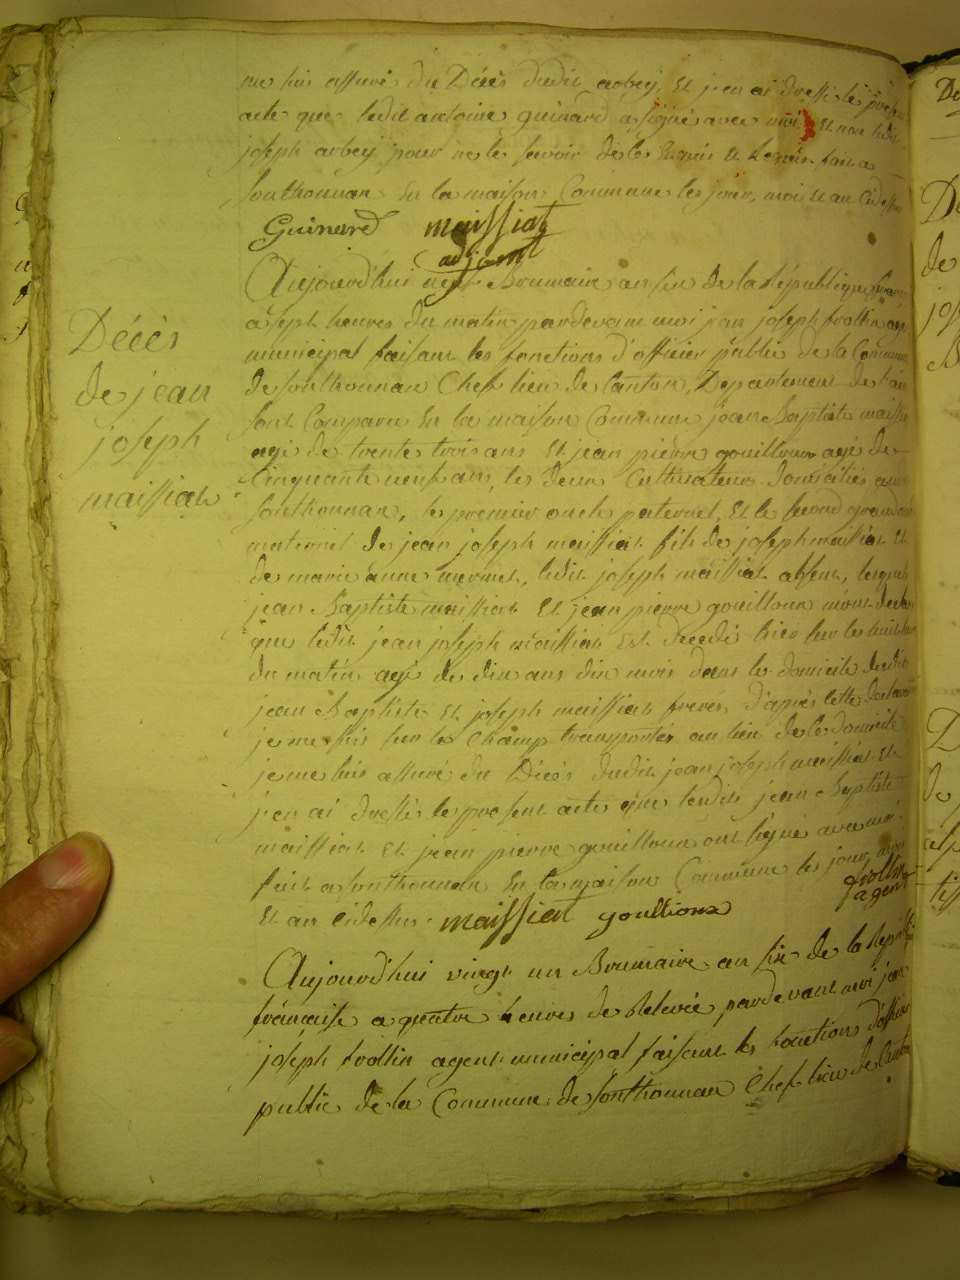 me suis assuré du Décès dudit arbey, et j'en ai dressé le présent
acte que ledit antoine guinard a signé avec moi et non ledit
joseph arbey pour ne le scavoir de ce enquis et requis fait a
Sonthonnax en la maison Commune les jour, mois et an cidessus
Guinard maissiat
adjoint
Aujourd'hui neuf Brumaire an six de la République
a sept heures du matin pardevant moi jean joseph frollin agent
municipal faisant les fonctions d'officier public de la Commune
de Sonthonnax Chef lieu de Canton, Département de l'ain
sont Comparu en la maison Commune jean Baptiste maissiat
agé de trente trois ans et jean pierre gouilloux agé de
Cinquante neuf ans, les deux Cultivateurs domiciliés audit
Sonthonnax, le premier oncle paternel, et le second grand
maternel de jean joseph maissiat fils de joseph maissiat et
de marie anne mermet, ledit joseph maissiat absent, lesquels
jean Baptiste maissiat et jean pierre gouilloux m'ont declaré
que ledit jean joseph maissiat est decedé hier sur les huit heures
du matin agé de dix ans dix mois dans le domicile dudit
jean Baptiste et joseph maissiat freres, d'après cette declaration
je me suis sur le Champ transporté au lieu de ce domicile
je me suis assuré du Décès dudit jean joseph maissiat et
j'en ai dressé le present acte que lesdits jean Baptiste
maissiat et jean pierre gouilloux ont signé avec moi
fait a Sonthonnax en la maison Commune les jour, mois
et an cidessus. maissiat gouilloux frollin
agent
Décès
de jean
joseph
maissiat
Aujourd'hui vingt un Brumaire an six de la République
française a quatre heures de Relevée pardevant moi jean
joseph frollin agent municipal faisant les fonctions d'officier
public de la Commune de Sonthonnax Chef lieu de Canton